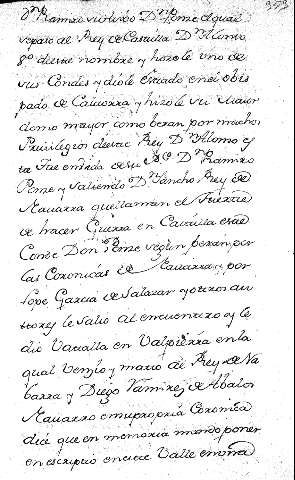 353
Dn Ramiro
Rey de Castilla Dn Alonso
8º de este nombre y hizole uno de
sus Condes y diole Estado en el obis
pado de y hizole su Maior
domo mayor como por muchos
Privilegios de este Rey Dn Alonso
Dn Ramiro
Ponze y Saliendo Dn Sancho Rey de
Nauarra que llamaron el Fuerte
de hacer Guerra en Castilla este
Conde Don Ponze segun por
las Coronicas de Nauarra y por
Lope Garcia de Salazar y otros au
tores le salio al encuentro y le
dio Vatalla en Valpierra en la
qual Venzio y mato al Rey de Na
barra y Diego Ramirez de Abalos
Nauarro en su propria Coronica
diz que en memoria mando poner
en escripto en este Valle